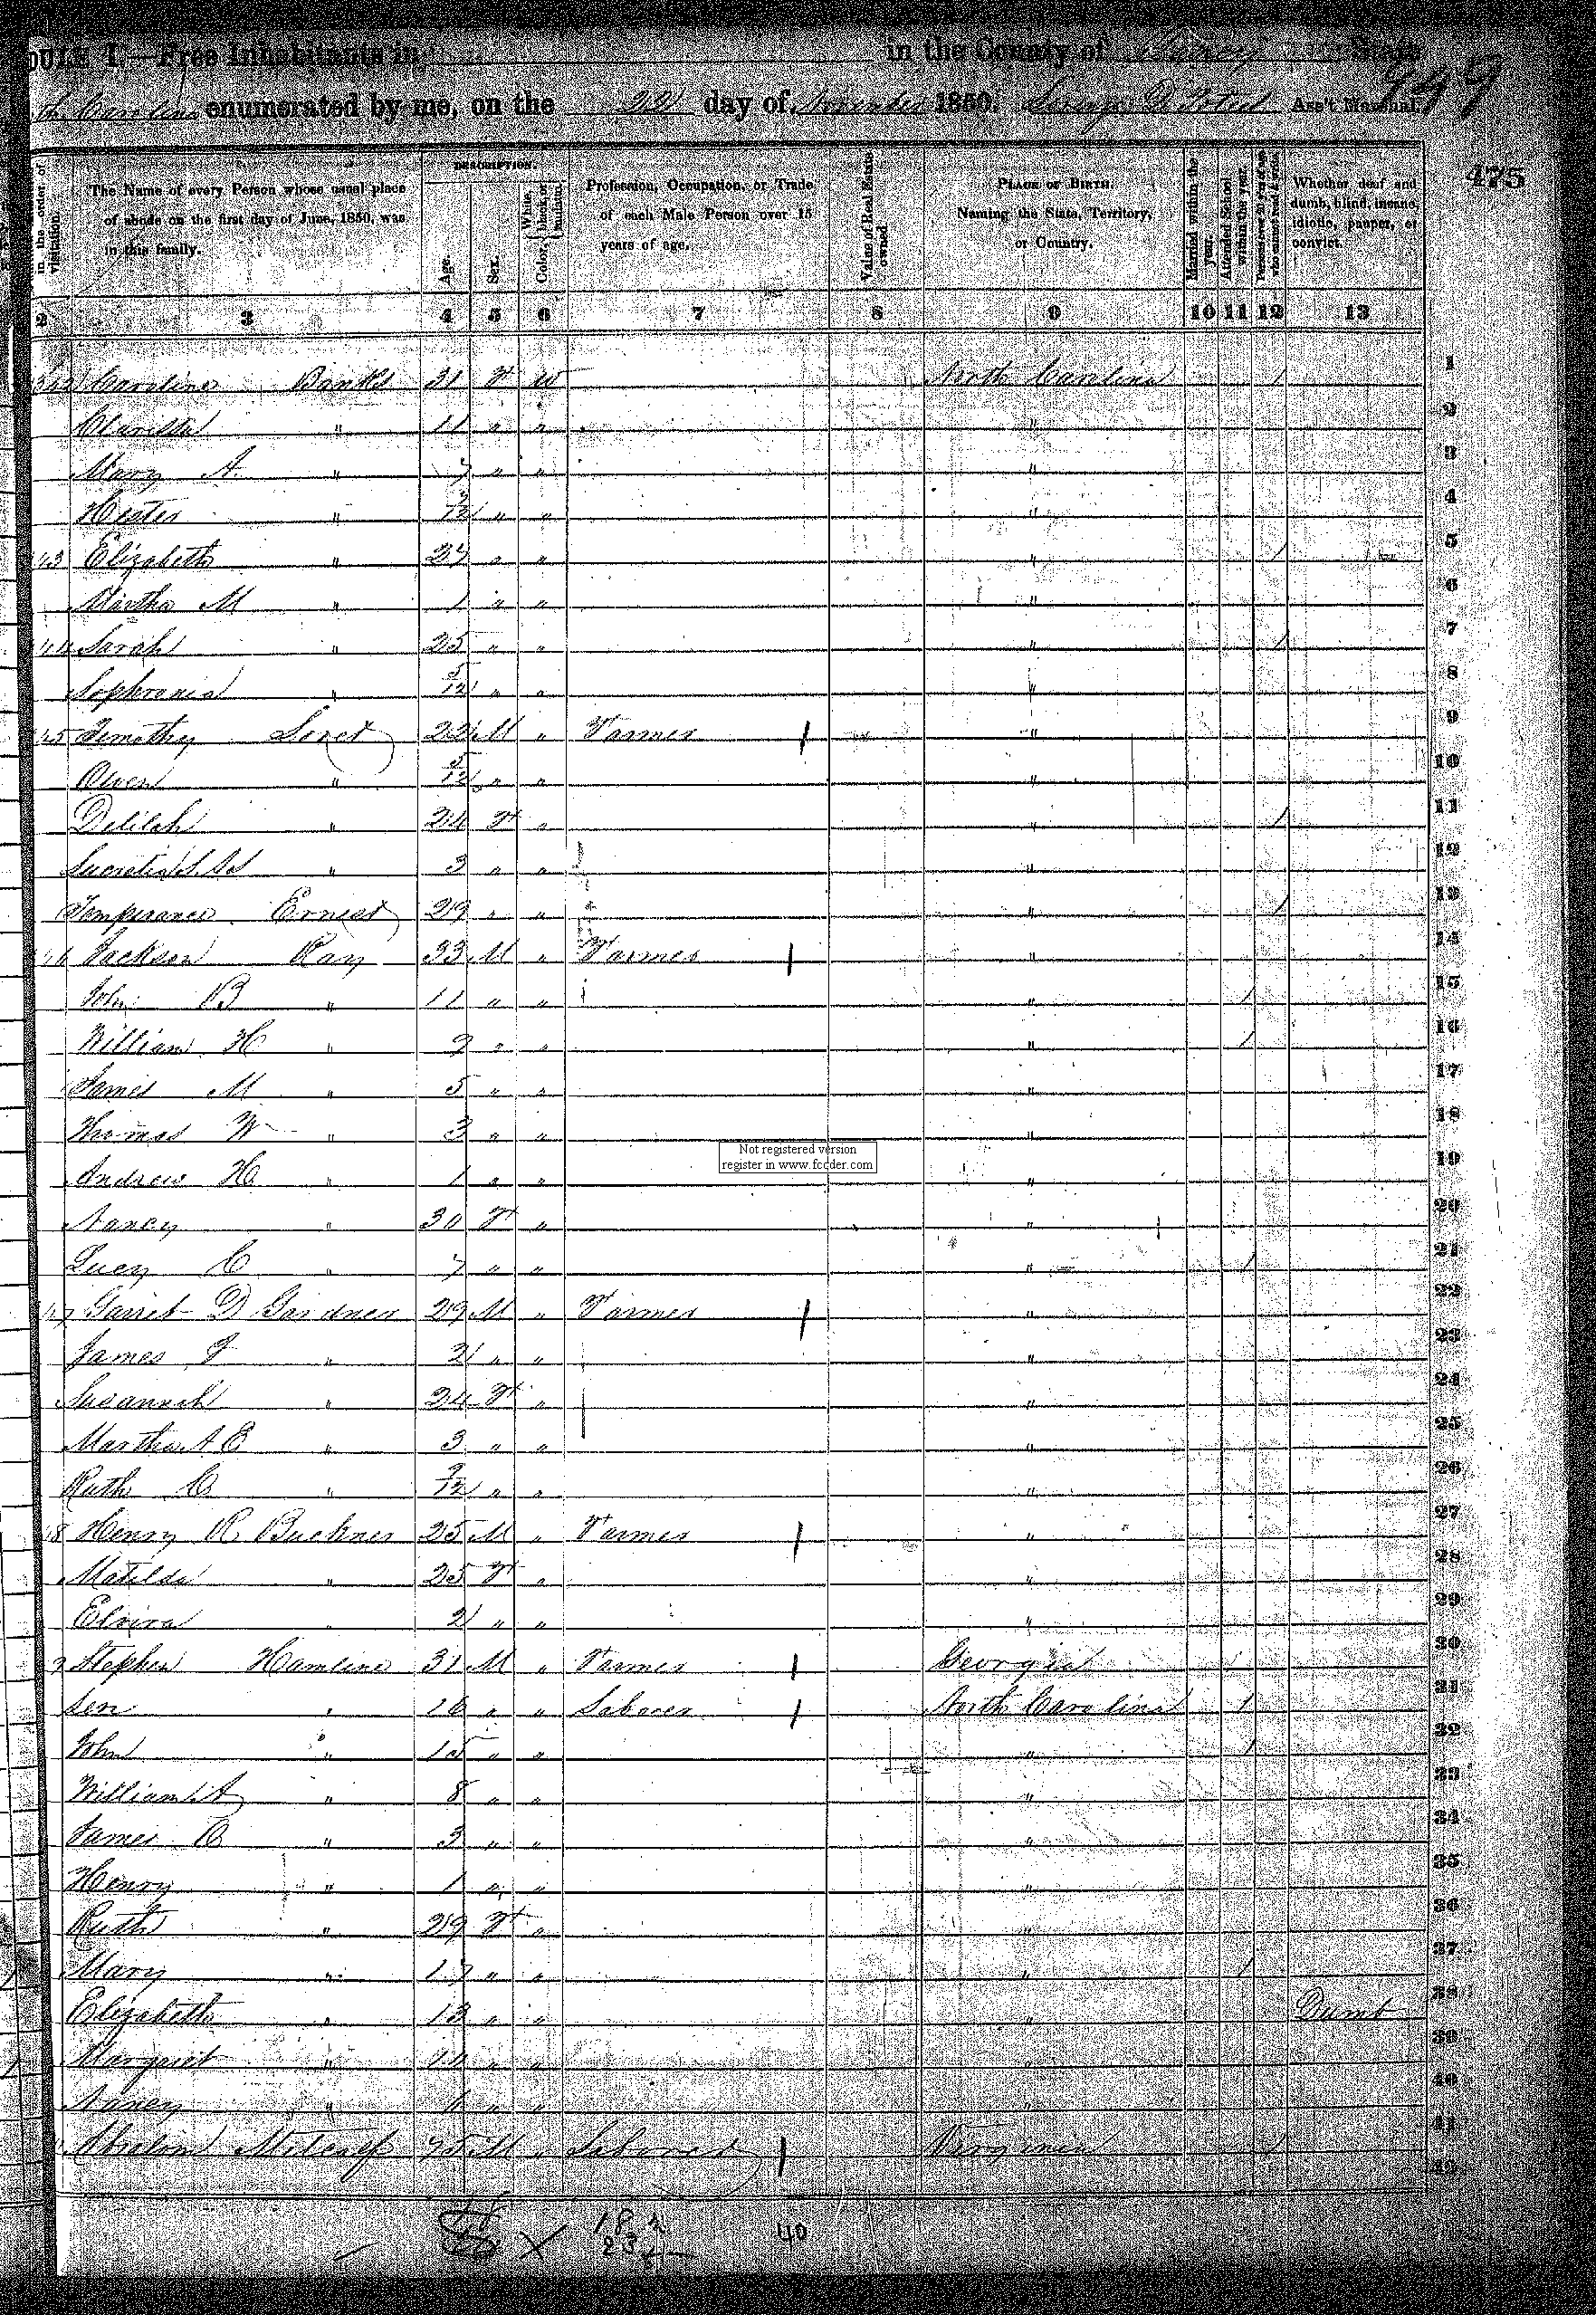 DULE I.—Free Inhabitants in in the County of Yancey State
th Carolina enumerated by me, on the 22 day of November 1850. Ass't Marshal.
475
in the order of visitation.
The Name of every Person whose usual place of abode on the first day of June, 1850, was in this family.
DESCRIPTION.
Age.
Sex.
Color, White, black, or mulatto.
Profession, Occupation, or Trade of each Male Person over 15 years of age.
Value of Real Estate owned.
PLACE OF BIRTH. Naming the State, Territory, or Country.
Married within the year.
Attended School within the year.
Persons over 20 y'rs of age who cannot read & write.
Whether deaf and dumb, blind, insane, idiotic, pauper, or convict.
2 3 4 5 6 7 8 9 10 11 12 13
Caroline Banks 31 F W North Carolina / 1
Clarissa " 11 " " " 2
Mary A. " 7 " " " 3
Hester " /12 " " " 4
43 Elizabeth " 27 " " " / 5
Martha M " 1 " " " 6
44 Sarah " 25 " " " / 7
Sophronia " 5/12 " " " 8
45 Timothy 22 M " Farmer " 9
Owen " 5/12 " " " 10
Delilah " 24 F " " / 11
Lucretia " 3 " " " 12
Temperance Ernest 29 " " " / 13
46 Jackson Ray 33 M " Farmer " 14
John B " 11 " " " / 15
William H " 9 " " " / 16
James M " 5 " " " 17
Thomas W " 3 " " " 18
Not registered version
register in www.fccder.com
Andrew H " 1 " " " 19
Nancy " 30 F " " 20
Lucy C " 7 " " " / 21
47 Garret D Gardner 29 M " Farmer " 22
James " 2 " " " 23
Susannah " 24 F " " 24
Martha A E " 3 " " " 25
Ruth C " 9/12 " " " 26
48 Henry R Buckner 25 M " Farmer " 27
Matilda " 25 F " " 28
Elvira " 2 " " " 29
Stephen Hamline 31 M " Farmer Georgia 30
" 16 " " Laborer North Carolina / 31
John " 15 " " " / 32
William A " 8 " " " 33
James R " 3 " " " 34
Henry " 1 " " " 35
Ruth " 29 F " " 36
Mary " 17 " " " / 37
Elizabeth " 13 " " " Dumb 38
Margaret " " " " 39
Nancy " 6 " " " 40
Metcalf 75 M " Laborer Virginia / 41
42
40